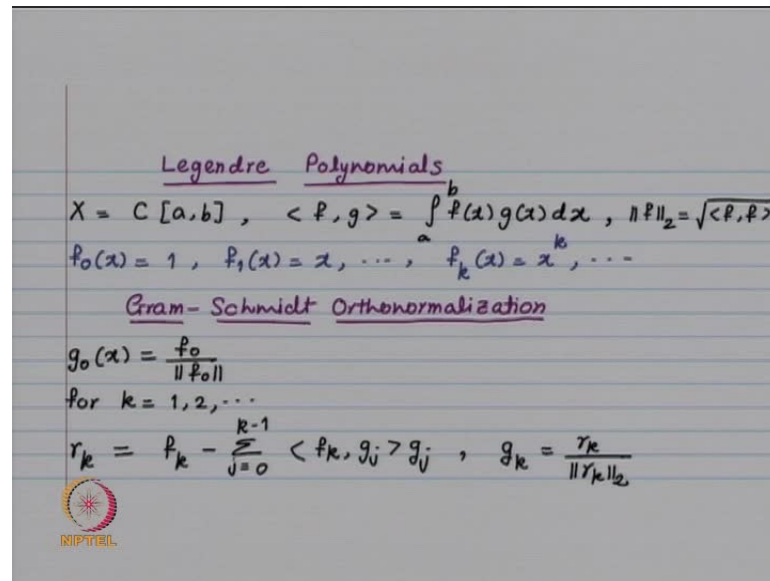 Legendre Polynomials
X = C [a,b] , < f, g > = ∫_a^b f(x) g(x) dx , ‖f‖₂ = √<f, f>
f₀(x) = 1 , f₁(x) = x, ⋯, f_k(x) = x^k, ⋯
Gram-Schmidt Orthonormalization
g₀(x) = f₀ / ‖f₀‖
for k = 1, 2, ⋯
r_k = f_k - Σ_{j=0}^{k-1} < f_k, g_j > g_j , g_k = r_k / ‖r_k‖₂
NPTEL